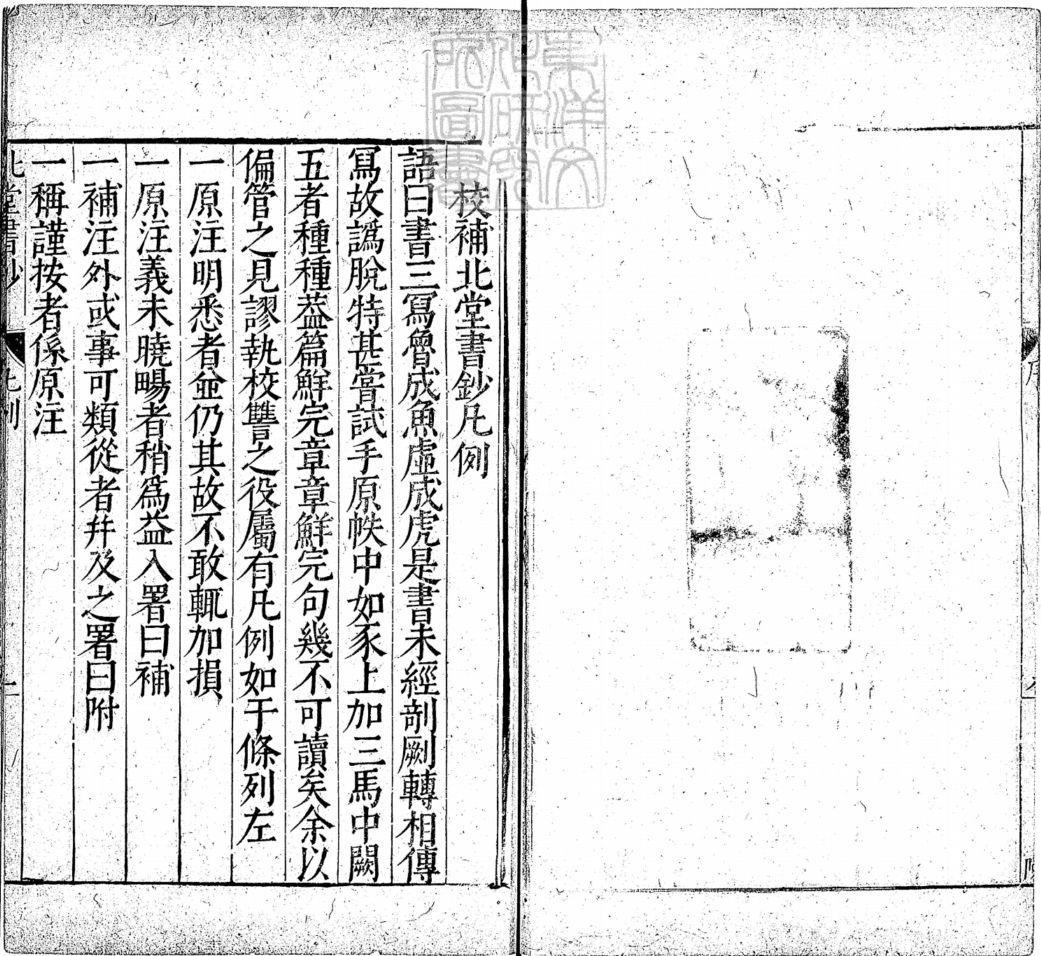 校補北堂書鈔凡例
語曰書三寫魯成魚虛成虎是書未經剞劂轉相傳
寫故譌脫特甚嘗試手原帙中如豕上加三馬中闕
五者種種葢篇鮮完章章鮮完句幾不可讀矣余以
偏管之見謬執校讐之役屬有凡例如于條列左
一原注明悉者竝仍其故不敢輒加損
一原注義未曉暢者稍爲益入署曰補
一補注外或事可類從者幷及之署曰附
一稱謹按者係原注
北堂書鈔 凡例 一
東洋文化研究所圖書